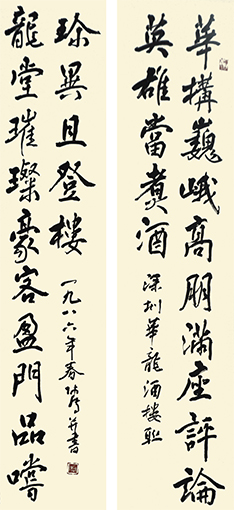 華構巍峨高朋滿座評論
英雄當煮酒
深圳華龍酒樓聯
龍堂璀璨豪客盈門品嚐
珍異且登樓
一九八六年春 并書